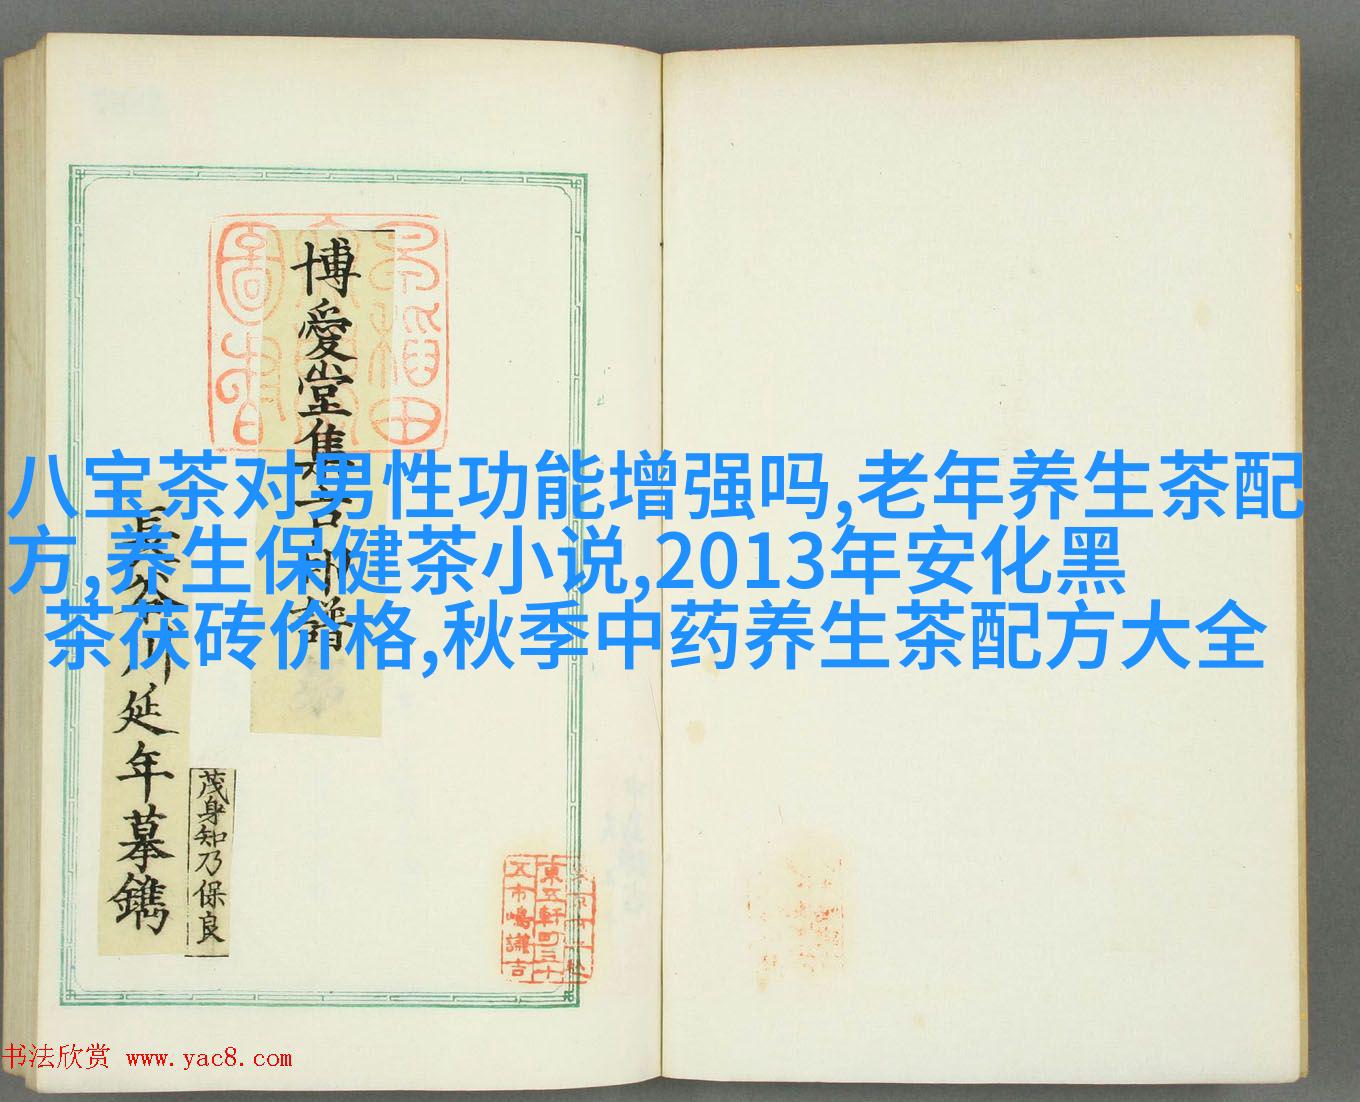 八宝茶对男性功能增强吗,老年养生茶配
方,养生保健茶小说,2013年安化黑
茶茯砖价格,秋季中药养生茶配方大全
博愛堂集古印譜
長谷川延年摹鐫
茂身知乃保良
東五軒町三十
五市嶋謙吉
书法欣赏 www.yac8.com